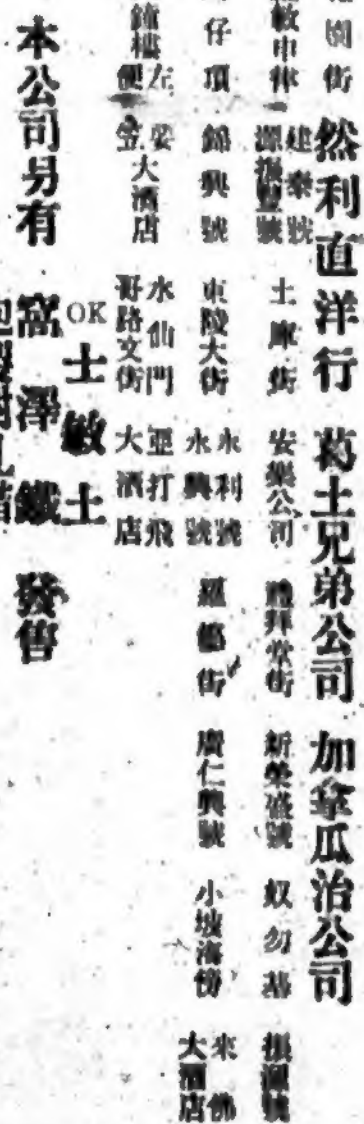 園街 然利直洋行 葛士兄弟公司 加拿瓜治公司
敏申律 建樂號 源振豐號 土庫街 安樂公司 禮拜堂街 新榮盛號 奴勿基 振源號
仔項 錦興號 東陵大街 永利號 永興號 羅敏街 廣仁興號 小坡海傍 來佛大酒店
鐘樓左便 安笠大酒店 水仙門哥路文街 亞打飛大酒店
本公司另有 OK士敏土 窩澤鐵 發售